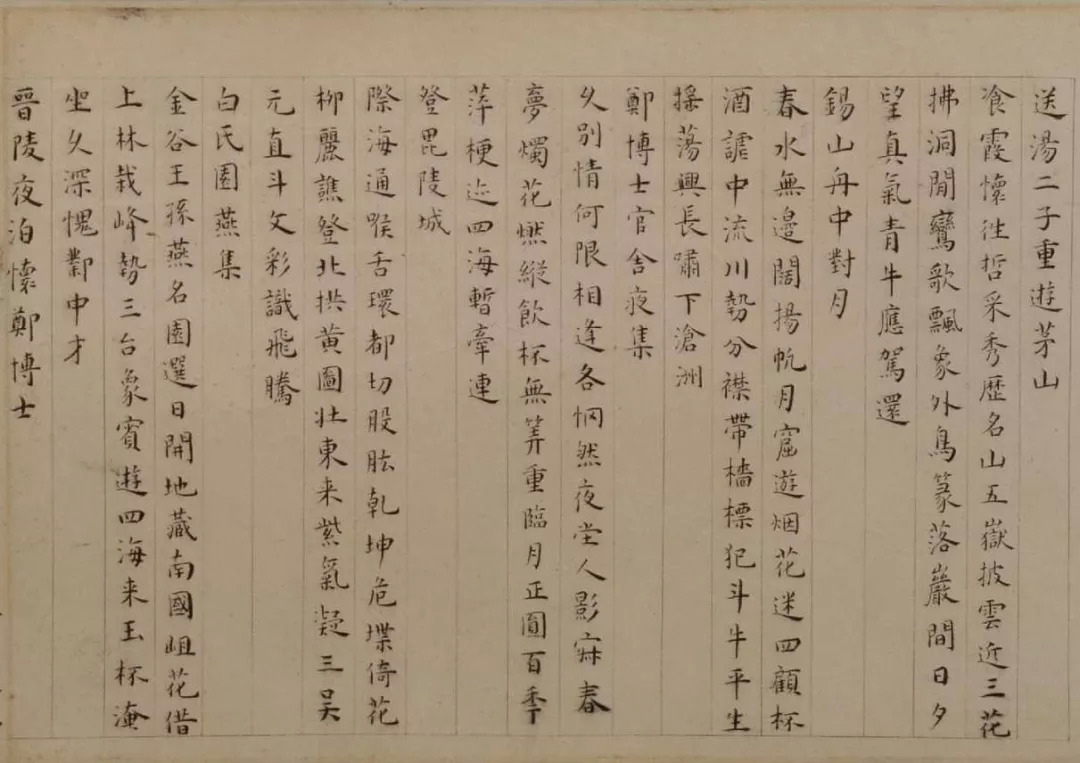 送湯二子重遊茅山
飡霞懷往哲采秀歷名山五嶽披雲近三花
拂洞閒鸞歌飄象外鳥篆落巖間日夕
望真氣青牛應駕還
錫山舟中對月
春水無邊闊揚帆月窟遊烟花迷四顧杯
酒謔中流川勢分襟帶檣標犯斗牛平生
搖蕩興長嘯下滄洲
鄭博士官舍夜集
久別情何限相逢各惘然夜堂人影寂春
夢燭花燃縱飲杯無筭重臨月正圓百季
萍梗迹四海暫牽連
登毘陵城
際海通喉舌環都切股肱乾坤危堞倚花
柳麗譙登北拱黄圖壯東来紫氣凝三吴
元直斗文彩識飛騰
白氏園燕集
金谷王孫燕名園選日開地藏南國岨花借
上林栽峰勢三台象賓遊四海来玉杯淹
坐久深愧鄴中才
晉陵夜泊懷鄭博士